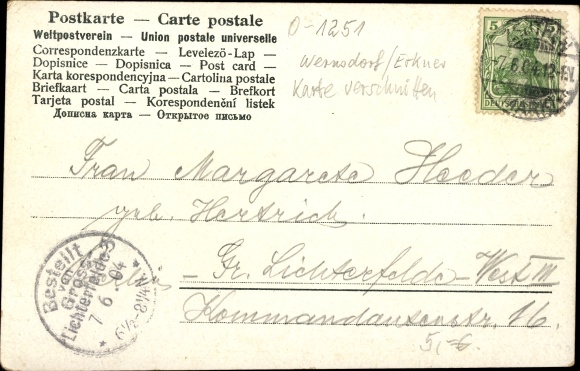 Postkarte — Carte postale
Weltpostverein — Union postale universelle
Correspondenzkarte — Levelező-Lap —
Dopisnice — Dopisnica — Post card —
Karta korespondencyjna — Cartolina postale
Briefkaart — Carta postala — Brefkort
Tarjeta postal — Korespondenční listek
Дописна карта — Открытое письмо
O-1251
Wernsdorf/Erkner
Karte verschnitten
5
7.6.04.12-1V.
DEUTSCHES
Frau Margarete Heeder
geb. Hertrich.
Gr. Lichterfelde-West III
Kommandantenstr. 16.
5,-6.
Bestellt
vom
Gross-
Lichterfelde 3
7 6. 04
6½-8¼